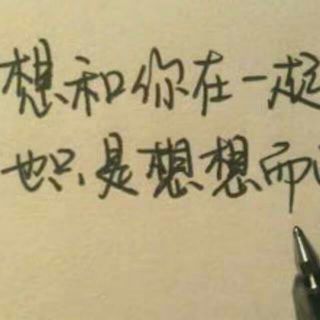 想和你在一起
也只是想想而